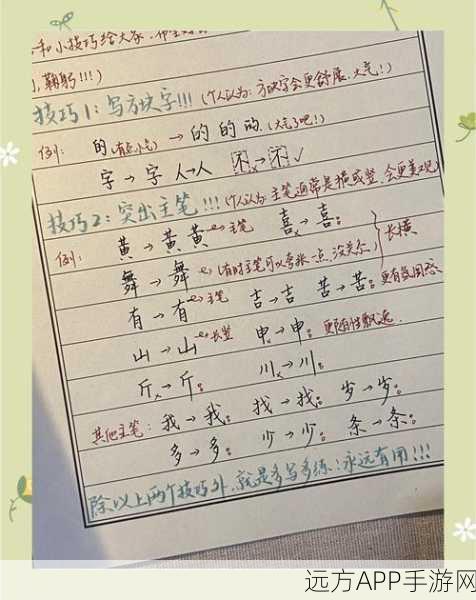 和小技巧给大家,
鞠躬!!!)
技巧1:写方块字!!!(个人认为:方块字会更舒展,大气!)
例: 的(有点小气)→的 的 的.(大气了吧!)
字→字 人→人 不×→不✓
技巧2:突出主笔!!!(个人认为主笔通常是横或竖,会更美观)
例: 黄→黄 黄→主笔 喜×→喜。
舞→舞(有时主笔可以夸张一点,没关系) 长横
有→有→主笔 吉→吉 苦→苦。更有氛围感
山→山→长竖 申×→申。更随性飘逸.
斤×→斤。 川×→川。
其他主笔:我→我。 找→找。 岁→岁。
多→多。 少→少。 条→条。
除以上两个技巧外,就是多写多练!永远有用!!!
远方APP手游网